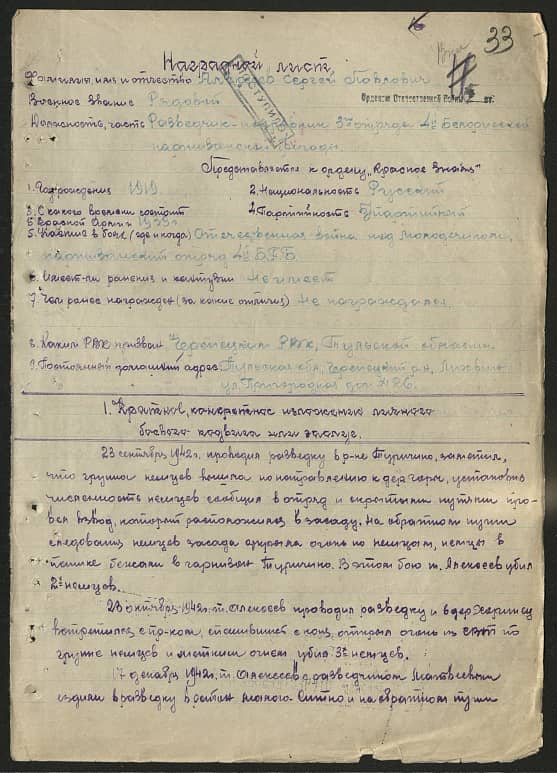 33
Наградной лист
Орденом Отечественной Войны II ст.
Фамилия, имя и отчество Алексеев Сергей Павлович
Военное звание Рядовой
Должность, часть Разведчик- отряда 4й Белорусской
партизанской бригады.
Представляется к ордену „Красное Знамя"
1. Год рождения 1919.
2. Национальность Русский
3. С какого времени состоит
в Красной Армии 1939г.
4. Партийность
5. Каких в боях (где и когда) Отечественная война под Молодечиком,
партизанский отряд 4й Б.П.Б.
6. Имеет-ли ранения и контузии Не имеет
7. Чем ранее награжден (за какие отличия) Не награждался.
8. Каким РВК призван Черепецким РВК, Тульской области.
9. Постоянный домашний адрес Тульская обл, Черепецкий р-н, Лихвин
ул. Пригородная дом №26.
1. Краткое, конкретное изложение личного
боевого подвига или заслуг.
23 сентября 1942г. проводил разведку в р-не Туричино, заметил,
что группа немцев вышла по направлению к дер. Гары, установив
численность немцев сообщил в отряд и скрытыми путями про-
вел взвод, который расположился в засаду. На обратном пути
следования немцев засада открыла огонь по немцам, немцы в
панике бежали в гарнизон Туричино. В этом бою т. Алексеев убил
2х немцев.
23 октября 1942г. т. Алексеев проводил разведку и в дер.
встретился с пр-ком, открыл огонь из СВТ по
группе немцев и метким огнем убил 3х немцев.
17 декабря 1942г. т. Алексеев с разведчиком Матвеевым
ездили в разведку в Ситно и на обратном пути